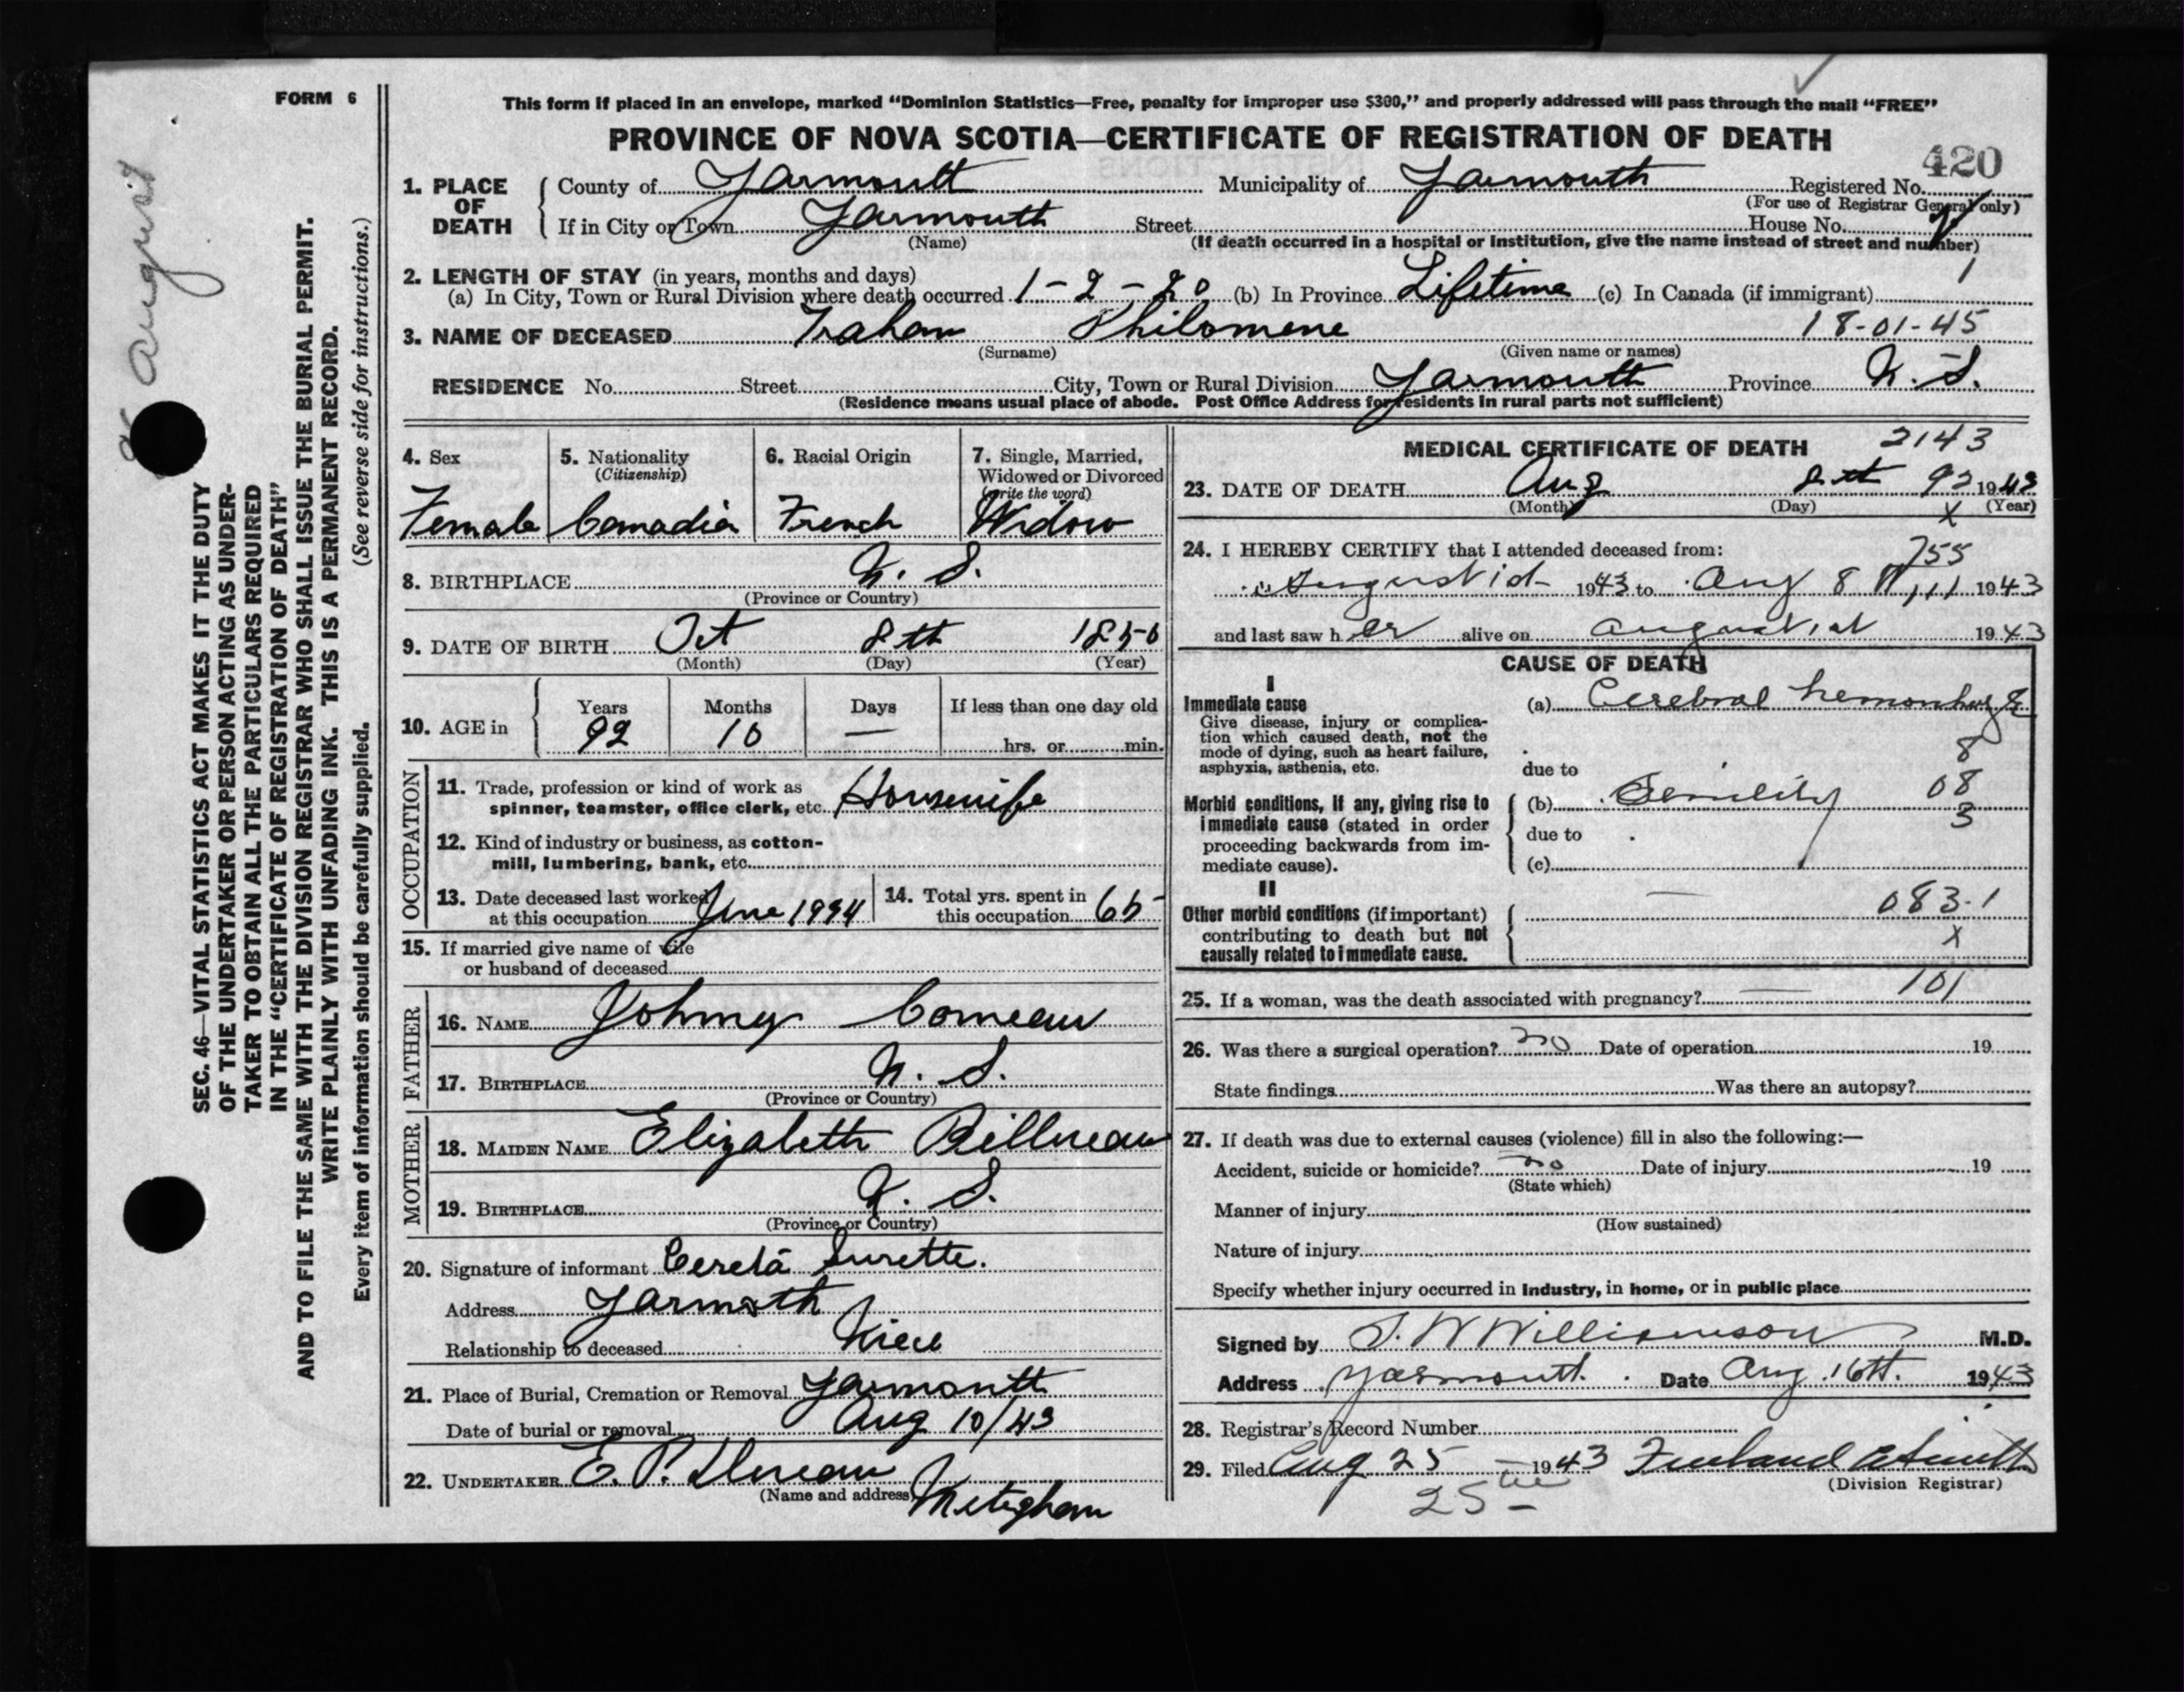 FORM 6
This form if placed in an envelope, marked "Dominion Statistics—Free, penalty for improper use $300," and properly addressed will pass through the mail "FREE"
PROVINCE OF NOVA SCOTIA—CERTIFICATE OF REGISTRATION OF DEATH
420
1. PLACE OF DEATH
County of Yarmouth Municipality of Yarmouth Registered No.
(For use of Registrar General only)
If in City or Town Yarmouth Street House No.
(Name) (If death occurred in a hospital or institution, give the name instead of street and number)
2. LENGTH OF STAY (in years, months and days)
(a) In City, Town or Rural Division where death occurred 1-2-20 (b) In Province Lifetime (c) In Canada (if immigrant)
3. NAME OF DECEASED Trahan Philomene 18-01-45
(Surname) (Given name or names)
RESIDENCE No. Street City, Town or Rural Division Yarmouth Province N.S.
(Residence means usual place of abode. Post Office Address for residents in rural parts not sufficient)
4. Sex
Female
5. Nationality
(Citizenship)
Canadia
6. Racial Origin
French
7. Single, Married, Widowed or Divorced
(write the word)
Widow
8. BIRTHPLACE N. S.
(Province or Country)
9. DATE OF BIRTH Oct 8th 1850
(Month) (Day) (Year)
10. AGE in Years 92 Months 10 Days — If less than one day old
hrs. or min.
OCCUPATION
11. Trade, profession or kind of work as
spinner, teamster, office clerk, etc. Housewife
12. Kind of industry or business, as cotton-
mill, lumbering, bank, etc.
13. Date deceased last worked
at this occupation June 1934
14. Total yrs. spent in
this occupation 65
15. If married give name of wife
or husband of deceased
FATHER
16. NAME Johnny Comeau
17. BIRTHPLACE N. S.
(Province or Country)
MOTHER
18. MAIDEN NAME Elizabeth
19. BIRTHPLACE N. S.
(Province or Country)
20. Signature of informant Surette.
Address Yarmoth
Relationship to deceased Niece
21. Place of Burial, Cremation or Removal Yarmouth
Date of burial or removal Aug 10/43
22. UNDERTAKER E. P.
(Name and address) Meteghan
MEDICAL CERTIFICATE OF DEATH 2143
23. DATE OF DEATH Aug 8th 92 1943
(Month) (Day) x (Year)
24. I HEREBY CERTIFY that I attended deceased from: 755
1943 to Aug 8 1943
and last saw her alive on august 1st 1943
CAUSE OF DEATH
I
Immediate cause
Give disease, injury or complica-
tion which caused death, not the
mode of dying, such as heart failure,
asphyxia, asthenia, etc.
(a) Cerebral hemorrhage
8
due to
Morbid conditions, if any, giving rise to
immediate cause (stated in order
proceeding backwards from im-
mediate cause).
(b) Senility 08
3
due to
(c)
II
Other morbid conditions (if important)
contributing to death but not
causally related to immediate cause.
— 083.1
x
25. If a woman, was the death associated with pregnancy? — 101
26. Was there a surgical operation? no Date of operation 19
State findings Was there an autopsy?
27. If death was due to external causes (violence) fill in also the following:—
Accident, suicide or homicide? no Date of injury 19
(State which)
Manner of injury
(How sustained)
Nature of injury
Specify whether injury occurred in Industry, in home, or in public place
Signed by S. W Williamson M.D.
Address Yarmouth. Date Aug. 16th. 1943
28. Registrar's Record Number
29. Filed Aug 25 1943
(Division Registrar)
25
August
SEC. 46—VITAL STATISTICS ACT MAKES IT THE DUTY
OF THE UNDERTAKER OR PERSON ACTING AS UNDER-
TAKER TO OBTAIN ALL THE PARTICULARS REQUIRED
IN THE "CERTIFICATE OF REGISTRATION OF DEATH"
AND TO FILE THE SAME WITH THE DIVISION REGISTRAR WHO SHALL ISSUE THE BURIAL PERMIT.
WRITE PLAINLY WITH UNFADING INK. THIS IS A PERMANENT RECORD.
Every item of information should be carefully supplied. (See reverse side for instructions.)